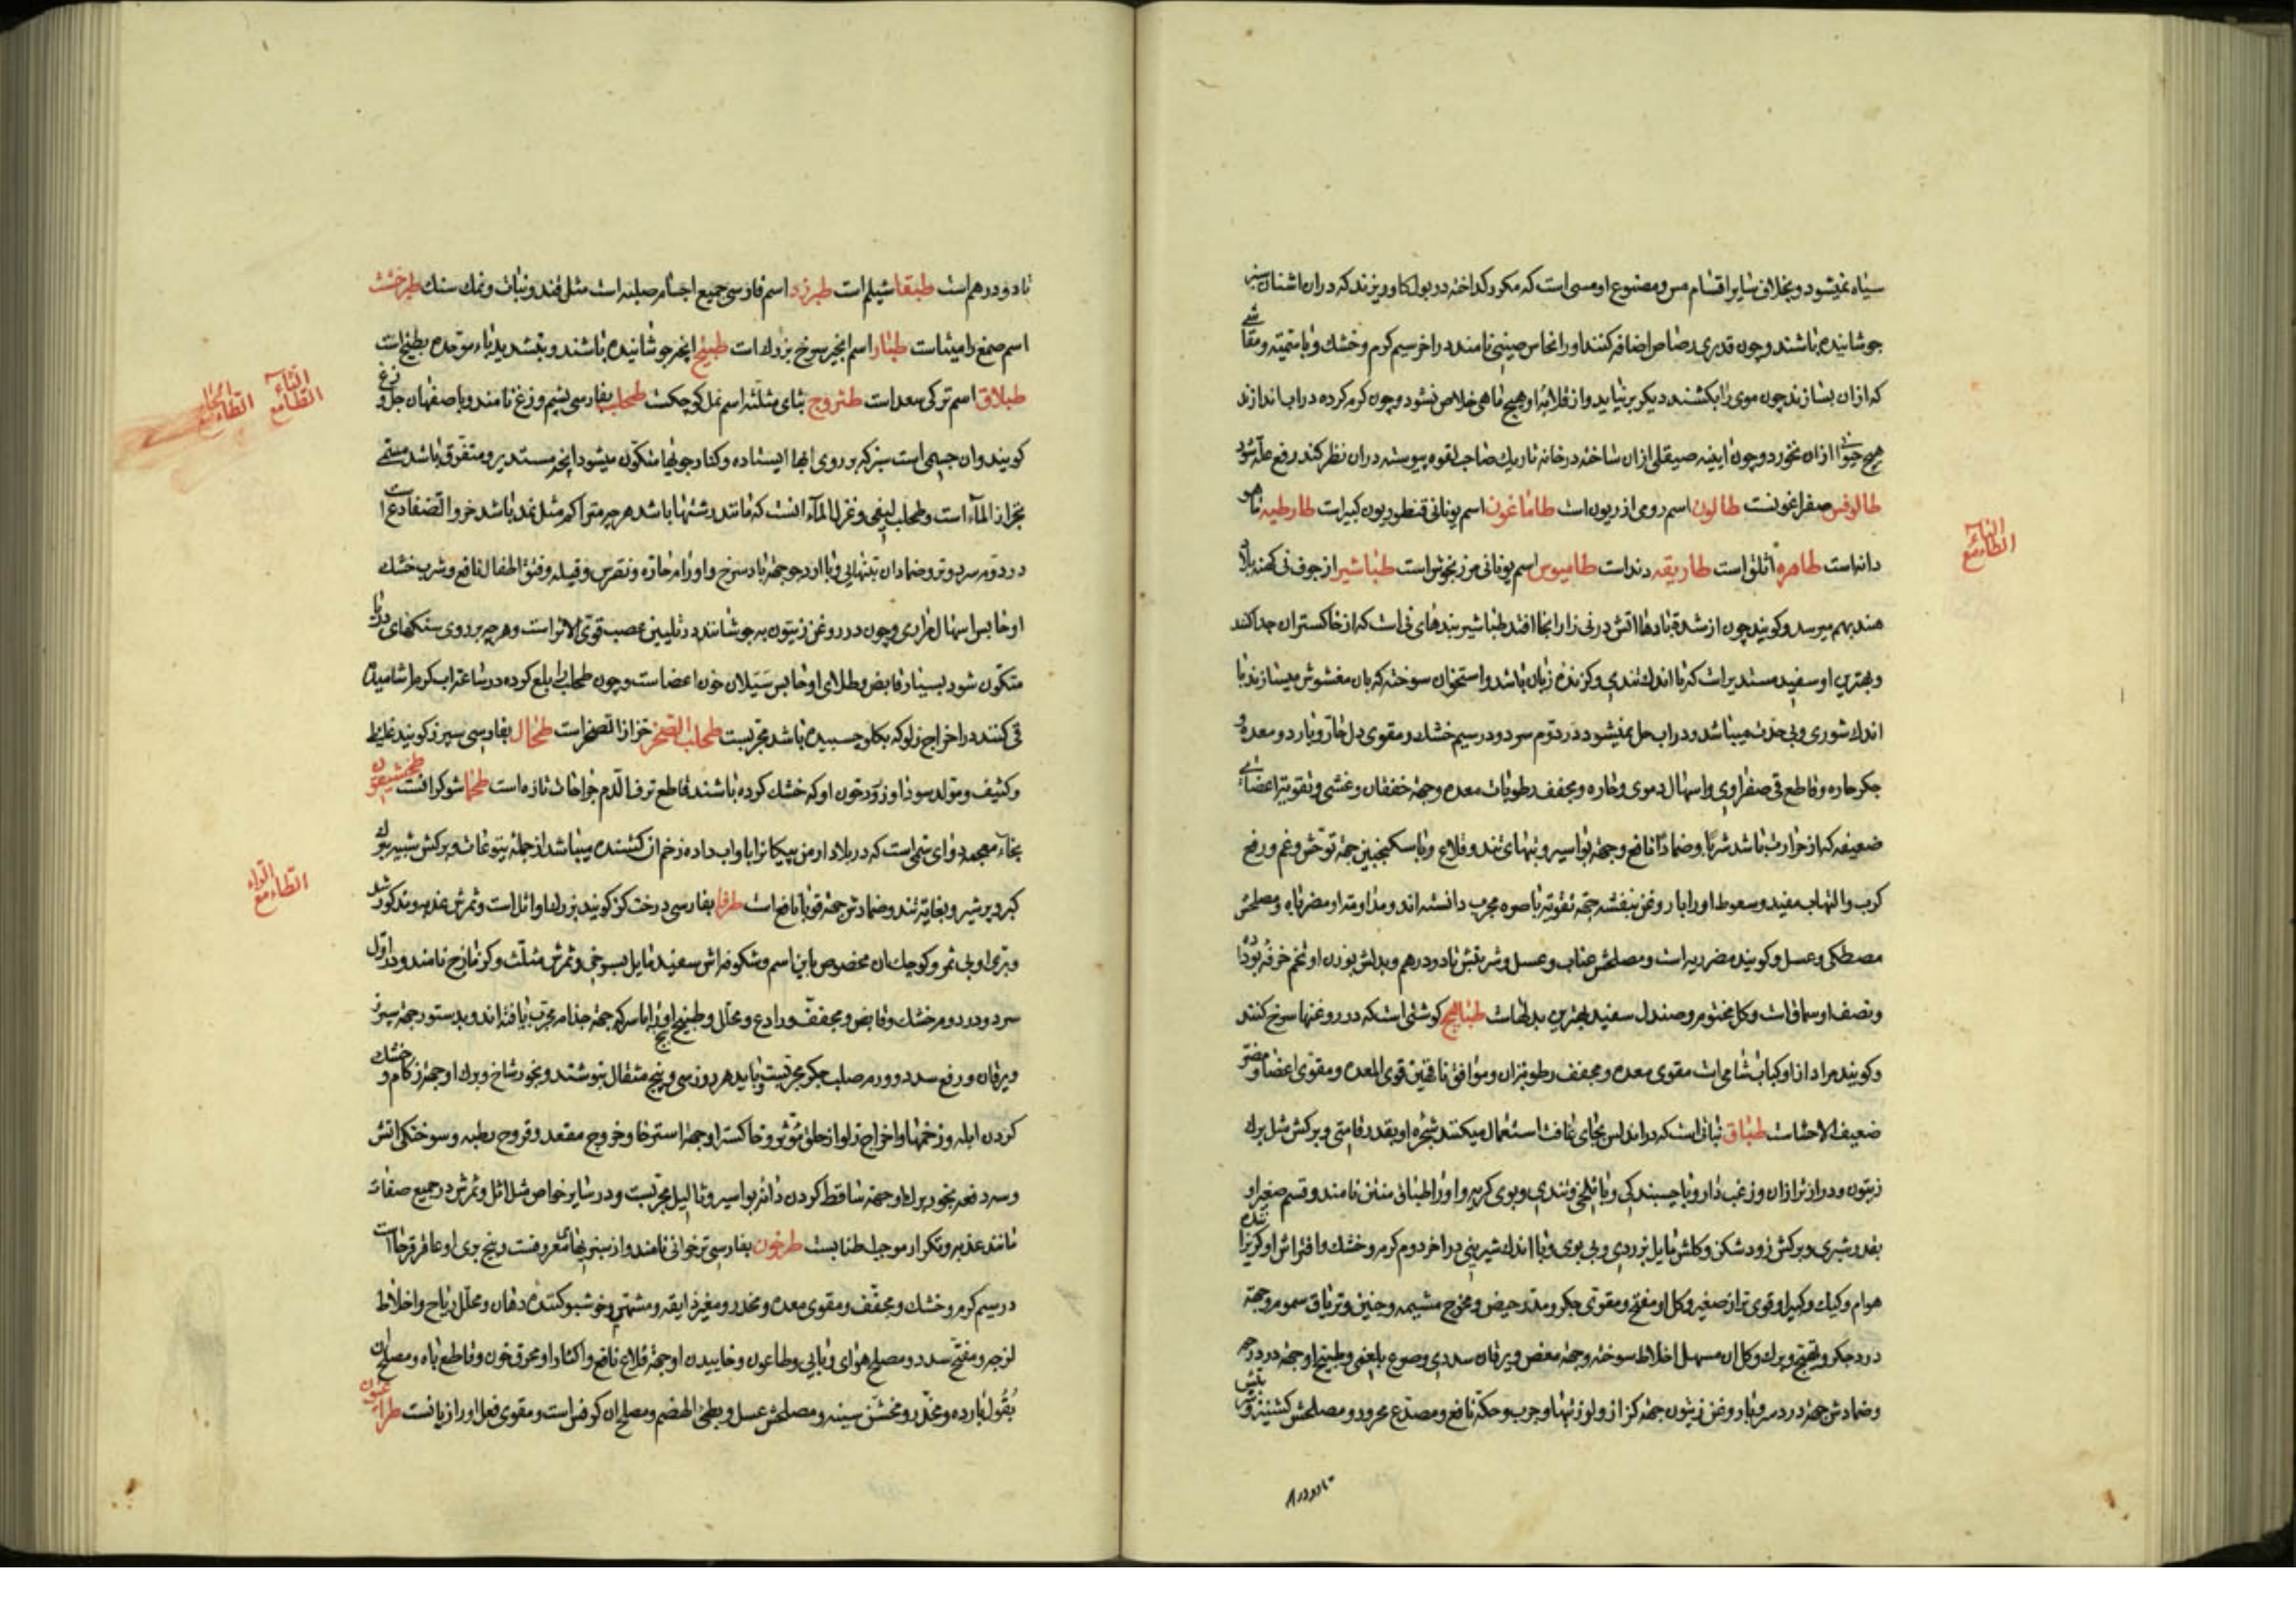 سیاه نمیشود و بخلاف سایر اقسام مس و مصنوع او مسی است که مکرر کداخته در بول کاو ریزند که دران اشنان سبز
جوشانیده باشند و چون قدری رصاص اضافه کنند او را نحاس صینی نامند در اخر سیم کرم و خشک و با سمیته و منقاشی
که ازان بسازند چون موی را بکشند دیکر برنیاید و از قلابه او هیچ ماهی خلاص نشود و چون کرم کرده در اب اندازند
هیچ حیوانی ازان نخورد و چون ایینه صیقلی ازان ساخته در خانه تاریک صاحب لقوه پیوسته دران نظر کند رفع علة شود
طالوفس صفراغونست طالون اسم رومی اذریون است طاماغون اسم یونانی قنطوریون کبیرات طارطیه ماهو
دانه است طاهره اثلق است طاریقه دند است طامیوس اسم یونانی مرزنجوش است طباشیر از جوف نی کهنه بلاد
هند بهم میرسد و کویند چون از شدة بادها اتش در نی زار انجا افتد طباشیر بندهای نی است که از خاکستر ان جدا کنند
و بهترین او سفید مستدیر است که با اندک تندی و کزنده زبان باشد و استخوان سوخته که بان مغشوش میسازند با
اندک شوری و بی حدت میباشد و در اب حل نمیشود در دوم سرد و در سیم خشک و مقوی دل حار و بارد و معده و
جکر حاره و قاطع قی صفراوی و اسهال دموی و حاره و مجفف رطوبات معده و جهة خفقان و غشی و تقویة اعضای
ضعیفه که از حرارت باشد شربا و ضمادا نافع و جهة بواسیر و تبهای تند و قلاع و با سکنجبین جهة توحش و غم و رفع
کرب و التهاب مفید و سعوط او را با روغن بنفشه جهة تقویة باصره مجرب دانسته اند و مداومة او مضر باه و مصلحش
مصطکی و عسل و کویند مضر ریه است و مصلحش عناب و عسل و شربتش تا دو درهم و بدلش بوزن او تخم خرفه بوداده
و نصف او سماق است و کل مختوم و صندل سفید بهترین بدلهات طباهج کوشتی است که در روغنها سرخ کنند
و کویند مراد از او کباب شامی است مقوی معده و مجفف رطوبة ان و موافق ناقهین قوی المعده و مقوی اعضا و مضر
ضعیف الاحشاست طباق نباتی است که در اندلس بجای غافث استعمال میکنند شجره او بقدر قامتی و برکش مثل برک
زیتون و درازتر ازان و زغب دار و با چسبندکی و با تلخی و تندی و بوی کریه و او را طباق منتن نامند و قسم صغیر او
بقدر شبری و برکش زود شکن و کلش مایل بزردی و بی بوی و با اندک شیرینی در اخر دوم کرم و خشک و افتراش او کریزاننده
هوام و کیک و کبیر او قوی تر از صغیر و کل او مفتح و مقوی جکر و مدر حیض و مخرج مشیمه و جنین و تریاق سموم و جهة
درد جکر و تهیج و برک و کل ان مسهل اخلاط سوخته و جهة مغص و یرقان سددی و صرع بلغمی و طبیخ او جهة درد رحم
و ضمادش جهة درد سر و با روغن زیتون جهة کزاز و لرز تبها و جرب و حکه نافع و مصدع محرور و مصلحش کشنیز و شربتش
تا دو درم
الطاء مع الباء
تا دو درهم است طبقا شیلم است طبرزد اسم فارسی جمیع اجسام صلبه است مثل قند و نبات و نمک سنک طبرخشت
اسم صمغ دامیثا است طبار اسم انجیر سرخ بزرک است طبیخ انچه جوشانیده باشند و بتشدید باء موحده بطیخ است
طبلاق اسم ترکی سعد است طثروج بثای مثلثه اسم نمل کوچکست طحلب بفارسی پشم وزغ نامند و باصفهان جل وزغ
کویند و ان جسمی است سبز که بر روی ابهای ایستاده و کنار جویها متکون میشود انچه مستدیر و متفرق باشد مسمی
بخرز الماء است و طحلب لیفی و غزل الماء انست که مانند رشتها باشد هرچه متراکم مثل نمد باشد خرو الضفادع است
در دوم سرد و تر و ضماد ان بتنهایی و با ارد جو جهة باد سرخ و اورام حاره و نقرس و قیله و فتق اطفال نافع و شرب خشک
او حابس اسهال مراری و چون در روغن زیتون بجوشانند در تلیین عصب قوی الاثر است و هرچه بر روی سنکهای دریا
متکون شود بسیار قابض و طلای او حابس سیلان خون اعضاست و چون طحلب را بلع کرده در ساعة اب کرم اشامیده
قی کنند در اخراج زلو که بکلو چسبیده باشد مجربست طحلب الصخر حزاز الصخر است طحال بفارسی سپرز کویند غلیظ
و کثیف و مولد سودا و زرد خون او که خشک کرده باشند قاطع نزف الدم جراحات تازه است طحما شوکرانست طخشیقون
بخاء معجمه دوای سمی است که در بلاد ارمن پیکانرا با و اب داده زخم ان کشنده میباشد از جمله یتوعات و برکش شبیه ببرک
کبر و پرشیر و بغایة تند و ضمادش جهة قوبا نافع است طرفا بفارسی درخت کز کویند بزرک او اثل است و ثمرش عذبه و مذکور شد
و بری او بی ثمر و کوچک ان مخصوص باین اسم و شکوفه اش سفید مایل بسرخی و ثمرش مثلث و کزمازج نامند در اول
سرد و در دوم خشک و قابض و مجفف و رادع و محلل و طبیخ بیخ او را با سرکه جهة جذام مجرب یافته اند و بدستور جهة سپرز
و یرقان و رفع سدد و ورم صلب جکر مجربست و باید هر روز سی و پنج مثقال بنوشند و بخور شاخ و برک او جهة زکام و خشک
کردن ابله و زخمها و اخراج زلو از حلق مؤثر و خاکستر او جهة استرخا و خروج مقعد و قروح رطبه و سوختکی اتش
و سه دفعه بخور برک او جهة ساقط کردن دانه بواسیر و ثالیل مجربست و در سایر خواص مثل اثل و ثمرش در جمیع صفات
مانند عذبه و تکرار موجب اطناب است طرخون بفارسی ترخوانی نامند و از سبزیهای معروفست و بیخ بری او عاقرقرحا است
در سیم کرم و خشک و مجفف و مقوی معده و مخدر و مغیر ذایقه و مشهی و خوشبو کننده دهان و محلل ریاح و اخلاط
لزجه و مفتح سدد و مصلح هوای وبایی و طاعون و خاییدن او جهة قلاع نافع و اکثار او محرق خون و قاطع باه و مصلح ان
بقول بارده و مخدر و مخشن سینه و مصلحش عسل و بطی الهضم و مصلح ان کرفس است و مقوی فعل او رازیانست طراغیون
الطاء مع الثاء
الطاء مع الحاء
الطاء مع الراء